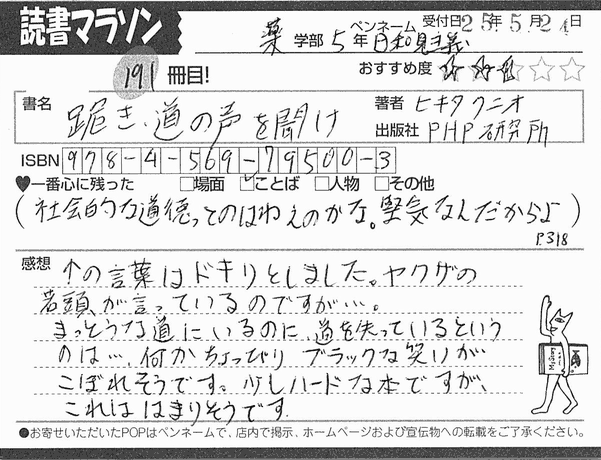 読書マラソン
191 冊目!
薬 学部 5 年 ペンネーム 日和見主義 受付日 25年 5月 2 日
おすすめ度 ★★★☆☆
書名 跪き、道の声を聞け
著者 ヒキタクニオ
出版社 PHP研究所
ISBN 978-4-569-79500-3
♥一番心に残った □場面 ☑ことば □人物 □その他
(社会的な道徳ってのはねえのかな。堅気なんだからよ)
P318
感想 ↑の言葉はドキリとしました。ヤクザの
若頭が言っているのですが…。
まっとうな道にいるのに、道を失っているという
のは…、何かちょっぴり ブラックな笑いが
こぼれそうです。少しハードな本ですが、
これははまりそうです
●お寄せいただいたPOPはペンネームで、店内で掲示、ホームページおよび宣伝物への転載をご了承ください。